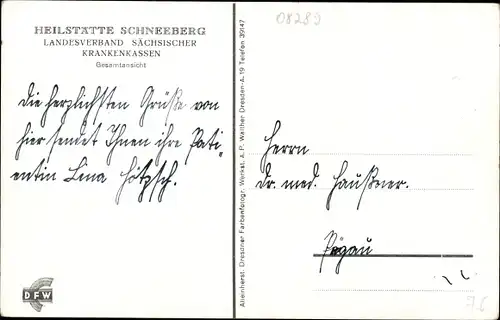 HEILSTÄTTE SCHNEEBERG
LANDESVERBAND SÄCHSISCHER
KRANKENKASSEN
Gesamtansicht
Die herzlichsten Grüße von
hier sendet Ihnen ihre Pati-
entin Lina Hötzsch.
DFW
Alleinherst. Dresdner Farbenfotogr. Werkst. A. P. Walther Dresden-A. 19 Telefon 39147
08289
Herrn
Dr. med. Haußner.
Pegau